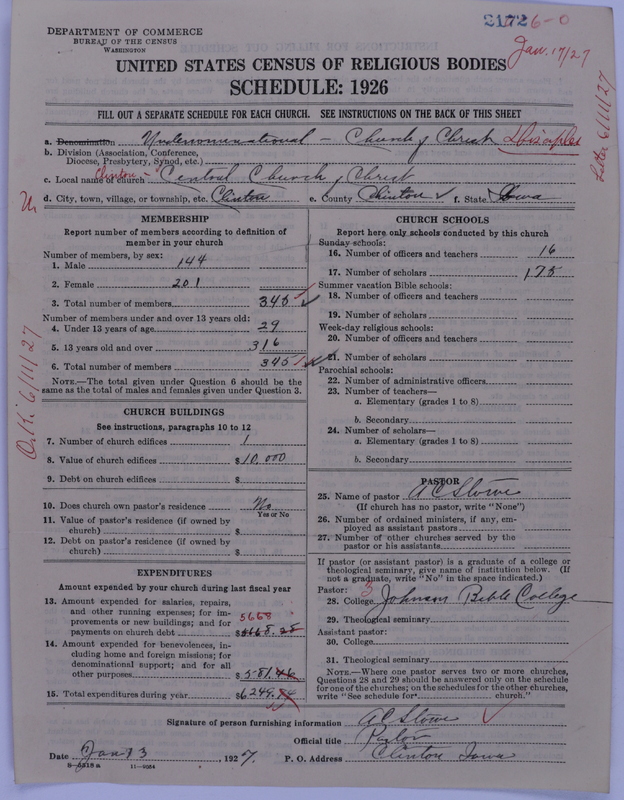 DEPARTMENT OF COMMERCE
BUREAU OF THE CENSUS
WASHINGTON
21726-0
Jan. 17/27
UNITED STATES CENSUS OF RELIGIOUS BODIES
SCHEDULE: 1926
FILL OUT A SEPARATE SCHEDULE FOR EACH CHURCH. SEE INSTRUCTIONS ON THE BACK OF THIS SHEET
a. Denomination Undenominational - Church of Christ Disciples
b. Division (Association, Conference, Diocese, Presbytery, Synod, etc.)
c. Local name of church Clinton - "Central Church of Christ
d. City, town, village, or township, etc. Clinton e. County Clinton f. State Iowa
Letter 6/11/27
O.K. 6/11/27
MEMBERSHIP
Report number of members according to definition of
member in your church
Number of members, by sex:
1. Male 144
2. Female 201
3. Total number of members 345
Number of members under and over 13 years old:
4. Under 13 years of age 29
5. 13 years old and over 316
6. Total number of members 345
NOTE.—The total given under Question 6 should be the
same as the total of males and females given under Question 3.
CHURCH BUILDINGS
See instructions, paragraphs 10 to 12
7. Number of church edifices 1
8. Value of church edifices $10,000
9. Debt on church edifices $
10. Does church own pastor's residence No
Yes or No
11. Value of pastor's residence (if owned by
church) $
12. Debt on pastor's residence (if owned by
church) $
EXPENDITURES
Amount expended by your church during last fiscal year
13. Amount expended for salaries, repairs,
and other running expenses; for im-
provements or new buildings; and for
payments on church debt 5668
14. Amount expended for benevolences, in-
cluding home and foreign missions; for
denominational support; and for all
other purposes $581.46
15. Total expenditures during year $6249.
CHURCH SCHOOLS
Report here only schools conducted by this church
Sunday schools:
16. Number of officers and teachers 16
17. Number of scholars 175
Summer vacation Bible schools:
18. Number of officers and teachers
19. Number of scholars
Week-day religious schools:
20. Number of officers and teachers
21. Number of scholars
Parochial schools:
22. Number of administrative officers
23. Number of teachers—
a. Elementary (grades 1 to 8)
b. Secondary
24. Number of scholars—
a. Elementary (grades 1 to 8)
b. Secondary
PASTOR
25. Name of pastor A C Stowe
(If church has no pastor, write "None")
26. Number of ordained ministers, if any, em-
ployed as assistant pastors
27. Number of other churches served by the
pastor or his assistants
If pastor (or assistant pastor) is a graduate of a college or
theological seminary, give name of institution below. (If
not a graduate, write "No" in the space indicated.)
Pastor: 3
28. College Johnson Bible College
29. Theological seminary
Assistant pastor:
30. College
31. Theological seminary
NOTE.—Where one pastor serves two or more churches,
Questions 28 and 29 should be answered only on the schedule
for one of the churches; on the schedules for the other churches,
write "See schedule for church."
Signature of person furnishing information A C Stowe
Official title Pastor
Date Jan 13 1927. P. O. Address Clinton Iowa
8-5318 a 11-9054